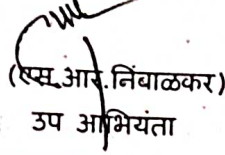 (एस.आर.निंबाळकर)
उप अभियंता